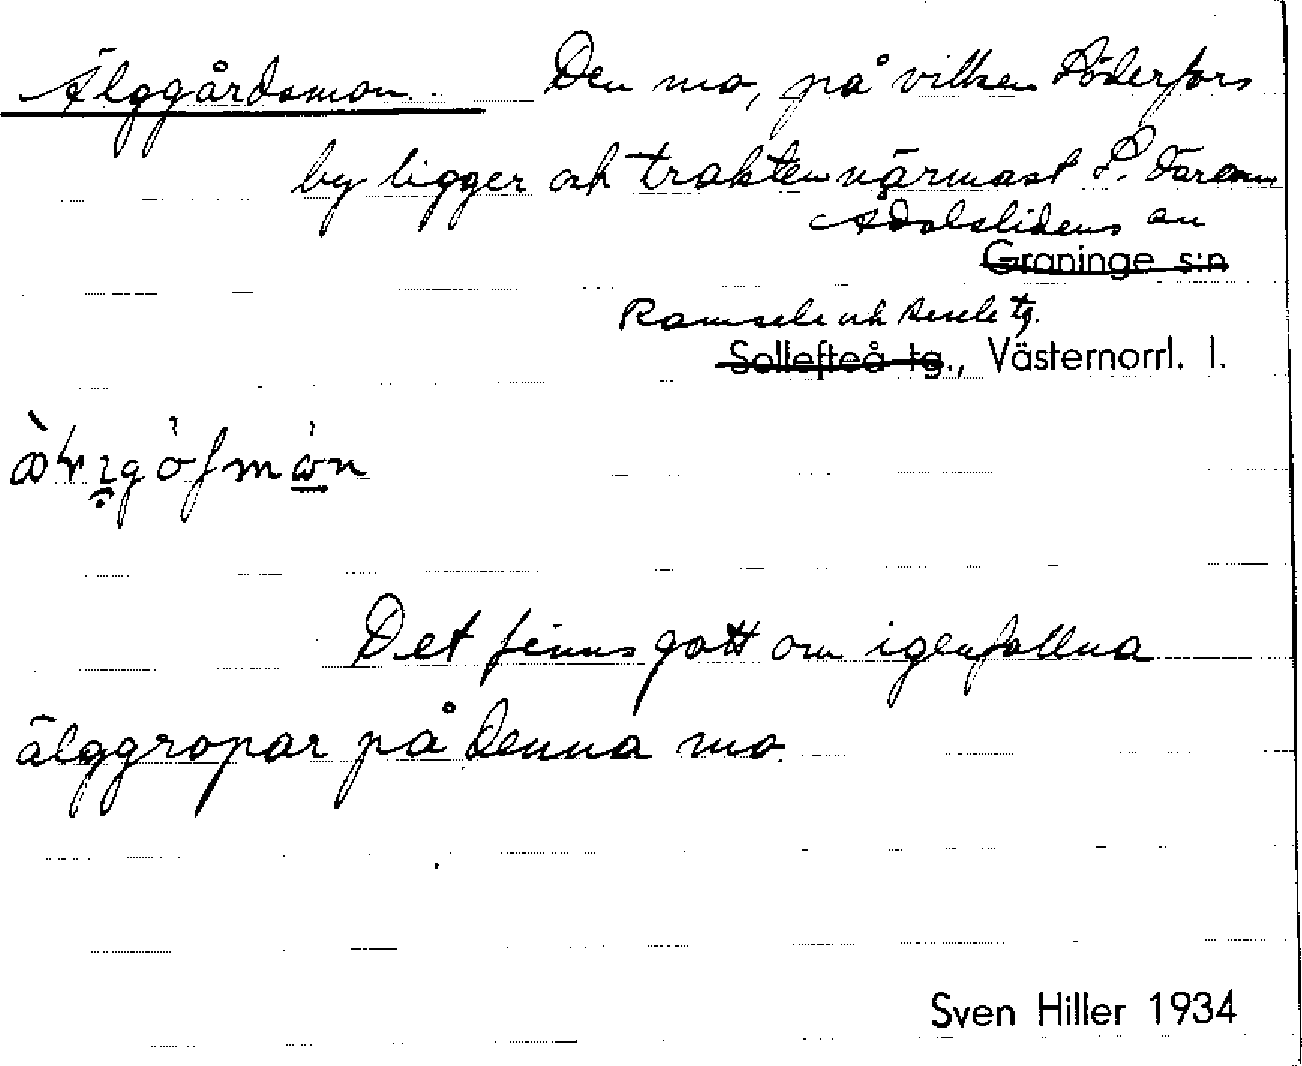 Älggårdsmon. Den mo, på vilken Söderfors
by ligger och trakten närmast S. därom
Ådalslidens sn
Graninge s:n
Ramsele och Resele tg.
Sollefteå tg., Västernorrl. l.
Det finns gott om igenfallna
älggropar på denna mo.
Sven Hiller 1934